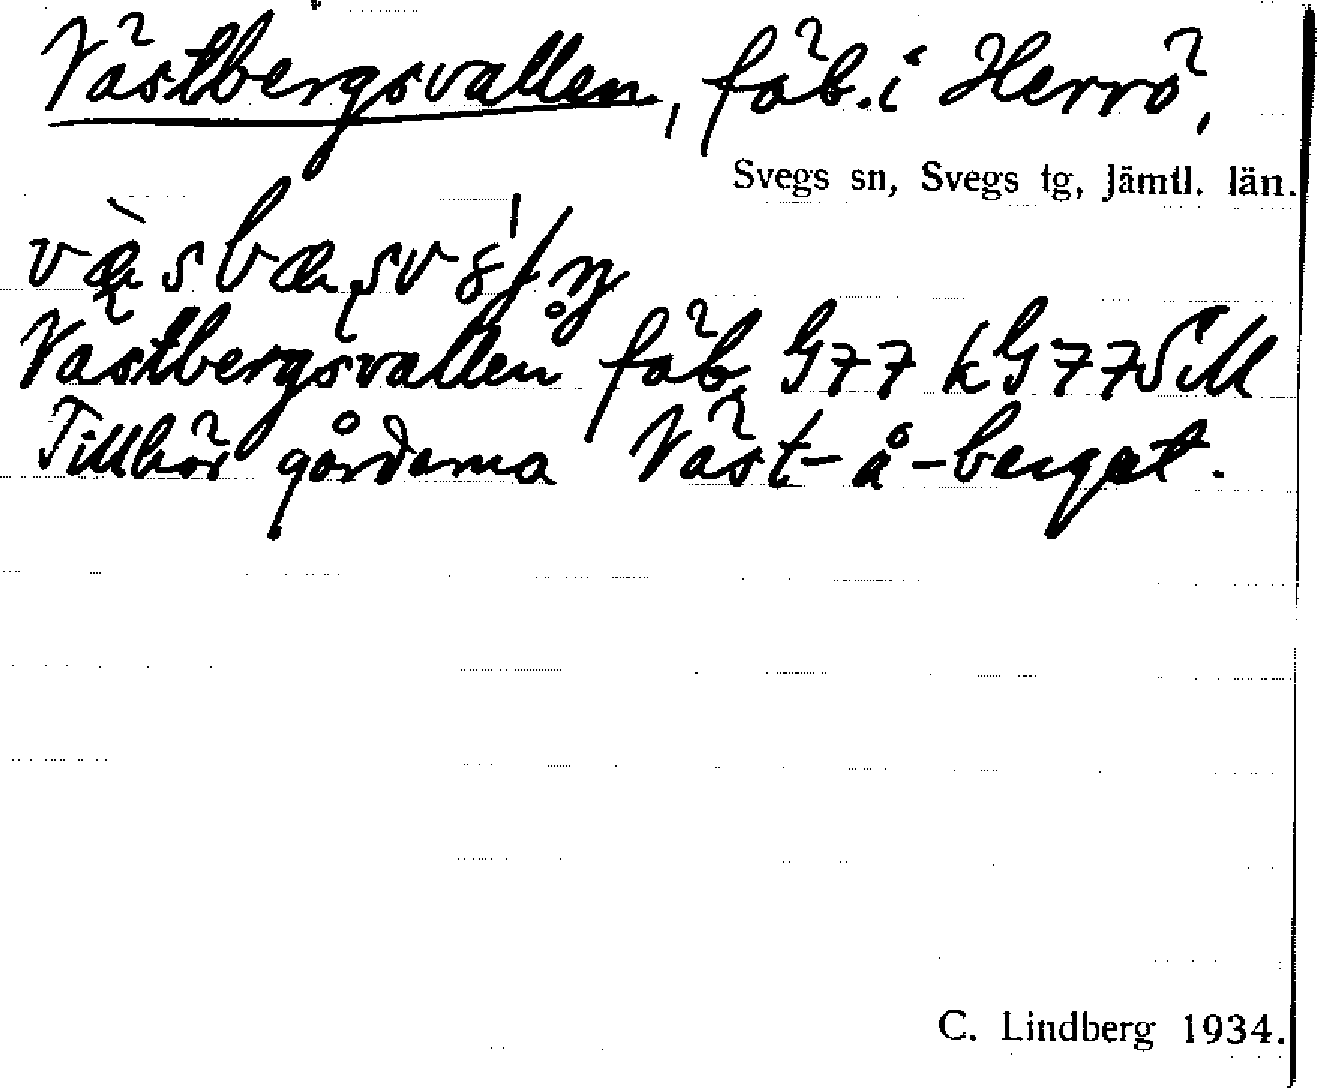 Västbergsvallen, fäb. i Herrö,
Svegs sn, Svegs tg, Jämtl. län.
Västbergsvallen fäb G77 kG77SM
Tillhör gårdarna Väst-å-berget.
C. Lindberg 1934.